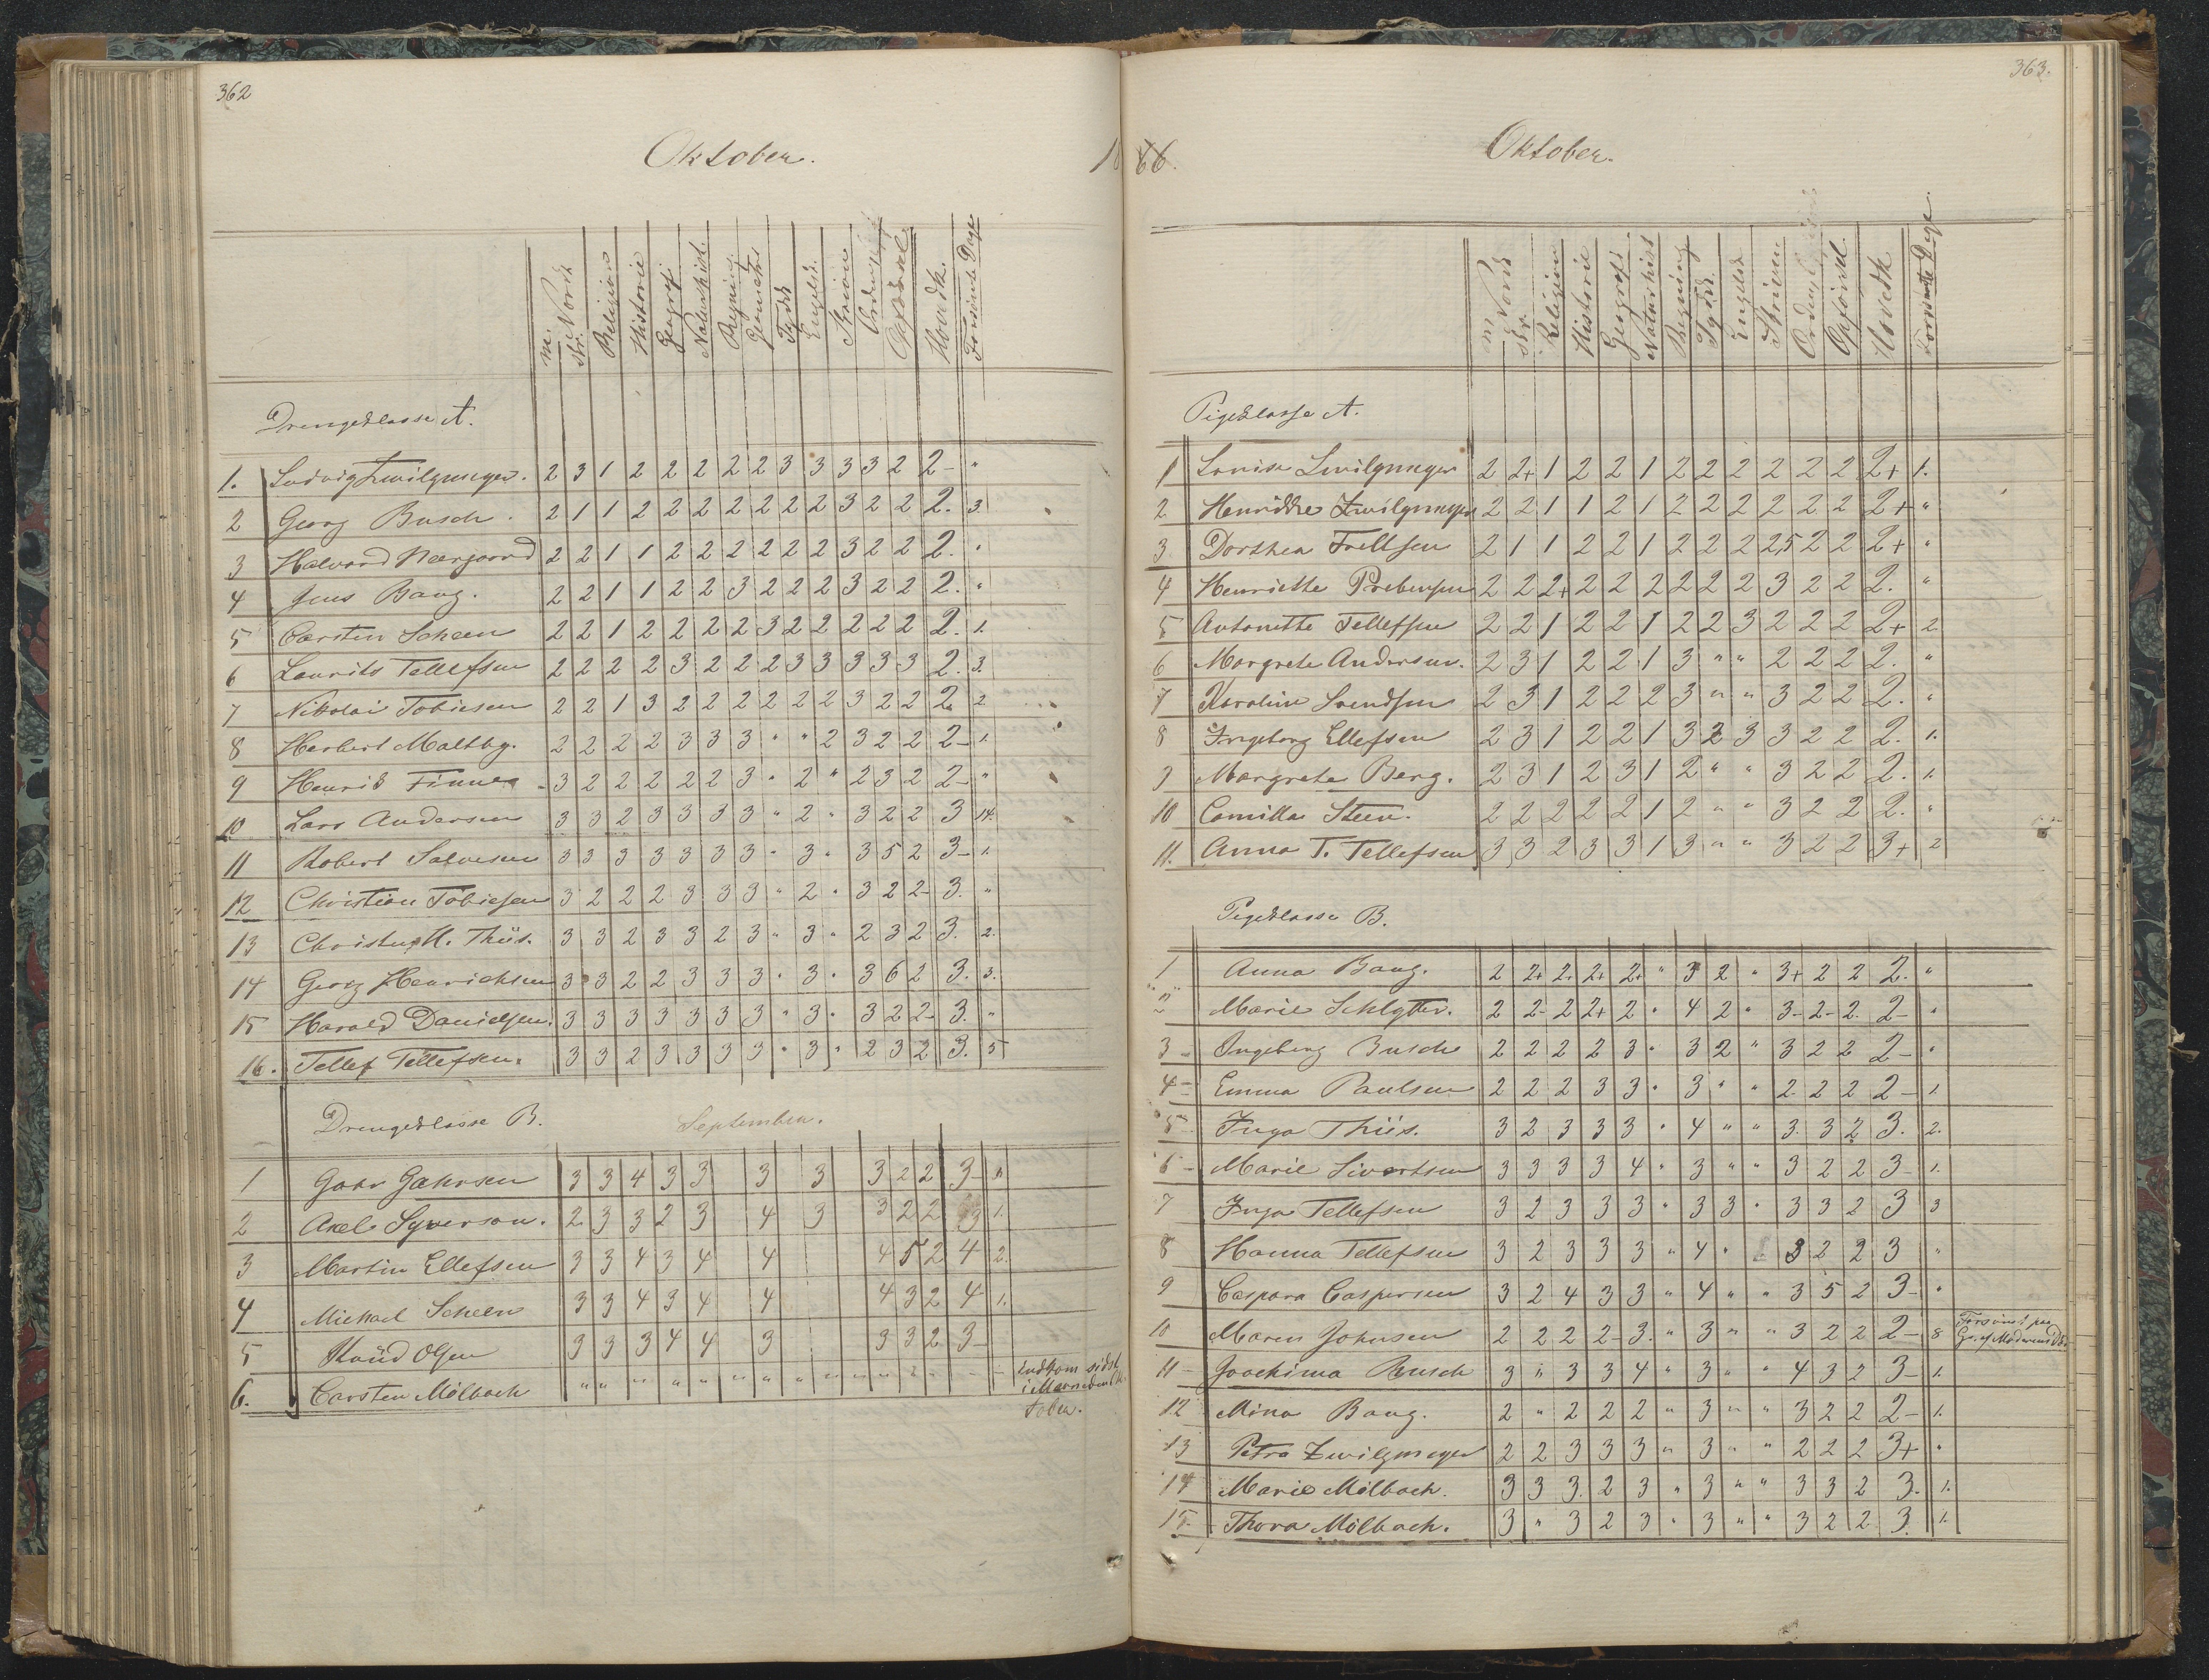 362
Oktober.
18
m. Norsk
skr. Norsk
Religion
Historie
Geografi
Naturhist.
Regning
Geometri
Tydsk
Engelsk
Skrivn
Orden
Opførsel
Hovedk.
Forsømte Dage
Drengeklasse A.
1. Ludvig Zwilgmeyer. 2 3 1 2 2 2 2 2 3 3 3 3 2 2- "
2 Georg Busch. 2 1 1 2 2 2 2 2 2 2 3 2 2 2. 3
3 Halvard Neergaard 2 2 1 1 2 2 2 2 2 2 3 2 2 2. "
4 Jens Bang. 2 2 1 1 2 2 3 2 2 2 3 2 2 2. "
5 Carsten Scheen 2 2 1 2 2 2 2 3 2 2 2 2 2 2. 1.
6 Laurits Tellefsen 2 2 2 2 3 2 2 2 3 3 3 3 3 2. 3.
7 Nikolai Tobiesen 2 2 1 3 2 2 2 2 2 2 3 2 2 2. 2
8 Herbert Maltby. 2 2 2 2 3 3 3 " " 2 3 2 2 2- 1.
9 Henrik Finne 3 2 2 2 2 2 3 " 2 " 2 3 2 2- "
10 Lars Andersen 3 3 2 3 3 3 3 " 2 " 3 2 2 3 14.
11 Robert Salvesen 3 3 3 3 3 3 3 " 3 " 3 5 2 3- 1.
12 Christian Tobiesen 3 2 2 2 3 3 3 " 2 " 3 2 2- 3. "
13 Christen M. Thiis. 3 3 2 3 3 2 3 " 3 " 2 3 2 3. 2.
14 Georg Henrichsen 3 3 2 2 3 3 3 " 3 " 3 6 2 3. 3.
15 Harald Danielsen. 3 3 3 3 3 3 3 " 3 " 3 2 2- 3. "
16. Tellef Tellefsen. 3 3 2 3 3 3 3 " 3 " 2 3 2 3. 5
Drengeklasse B. September.
1 Gahr Gahrsen 3 3 4 3 3 3 3 3 2 2 3- 1.
2 Axel Syverson. 2 3 3 2 3 4 3 3 2 2 3 1.
3 Martin Ellefsen 3 3 4 3 4 4 4 5 2 4 2.
4 Michael Scheen 3 3 4 3 4 4 4 3 2 4 1.
5 Knüd Olsen 3 3 3 4 4 3 3 3 2 3-
6. Carsten Mölbach " " " " " " " " " " " " "
Indkom sidst
i Maaneden Ok-
tober.
363.
66.
Oktober.
m Norsk
skr.
Religion
Historie
Geografi
Naturhist
Regning
Tydsk
Engelsk
Skrivnn
Orden
Opførsel
Hovedk
Forsømte Dage
Pigeklasse A.
1 Lovise Zwilgmeyer 2 2+ 1 2 2 1 2 2 2 2 2 2 2+ 1.
2 Henrikke Zwilgmeyer 2 2 1 1 2 1 2 2 2 2 2 2 2+ "
3 Dorthea Trellsen 2 1 1 2 2 1 2 2 2 2,5 2 2 2+ "
4 Henriette Prebensen 2 2 2+ 2 2 2 2 2 2 3 2 2 2. "
5 Antonette Tellefsen 2 2 1 2 2 1 2 2 3 2 2 2 2+ 2
6 Margrete Andersen. 2 3 1 2 2 1 3 " " 2 2 2 2. "
7 Karoline Svendsen 2 3 1 2 2 2 3 " " 3 2 2 2. "
8 Ingeborg Ellefsen 2 3 1 2 2 1 3 2 3 3 2 2 2. 1.
9 Margrete Berg. 2 3 1 2 3 1 2 " " 3 2 2 2. 1.
10 Camilla Steen. 2 2 2 2 2 1 2 " " 3 2 2 2. "
11. Anna T. Tellefsen 3 3 2 3 3 1 3 " " 3 2 2 3+ 2
Pigeklasse B.
1 Anna Bang. 2 2+ 2. 2+ 2+ " 3 2 " 3+ 2 2 2. "
2 Marie Schlytter. 2 2- 2 2+ 2 " 4 2 " 3- 2- 2. 2- "
3 Ingeborg Busch 2 2 2 2 3 " 3 2 " 3 2 2 2- "
4 Emma Paulsen 2 2 2 3 3 " 3 " " 2 2 2 2- 1.
5 Inga Thiis. 3 2 3 3 3 " 4 " " 3. 3 2 3. 2.
6 Marie Sivertsen 3 3 3 3 4 " 3 " " 3 2 2 3- 1.
7 Inga Tellefsen 3 2 3 3 3 " 3 3 " 3 3 2 3 3
8 Hanna Tellefsen 3 2 3 3 3 " 4 " 3 2 2 3 "
9 Caspara Caspersen 3 2 4 3 3 " 4 " " 3 5 2 3- "
10 Maren Johnsen 2 2 2 2- 3. " 3 " " 3 2 2 2- 8 Forsømt paa
Gr. af Moderens Død.
11 Joachima Busch 3 " 3 3 4 " 3 " " 4 3 2 3- 1.
12 Mina Bang. 2 " 2 2 2 " 3 " " 3 2 2 2- 1.
13 Petra Zwilgmeyer 2 2 3 3 3 " 3 " " 2 2 2 3+ "
14 Marie Mölbach. 3 3 3. 2 3 " 3 " " 3 3 2 3. 1.
15. Thora Mölbach. 3 " 3 2 3 " 3 " " 3 2 2 3. 1.